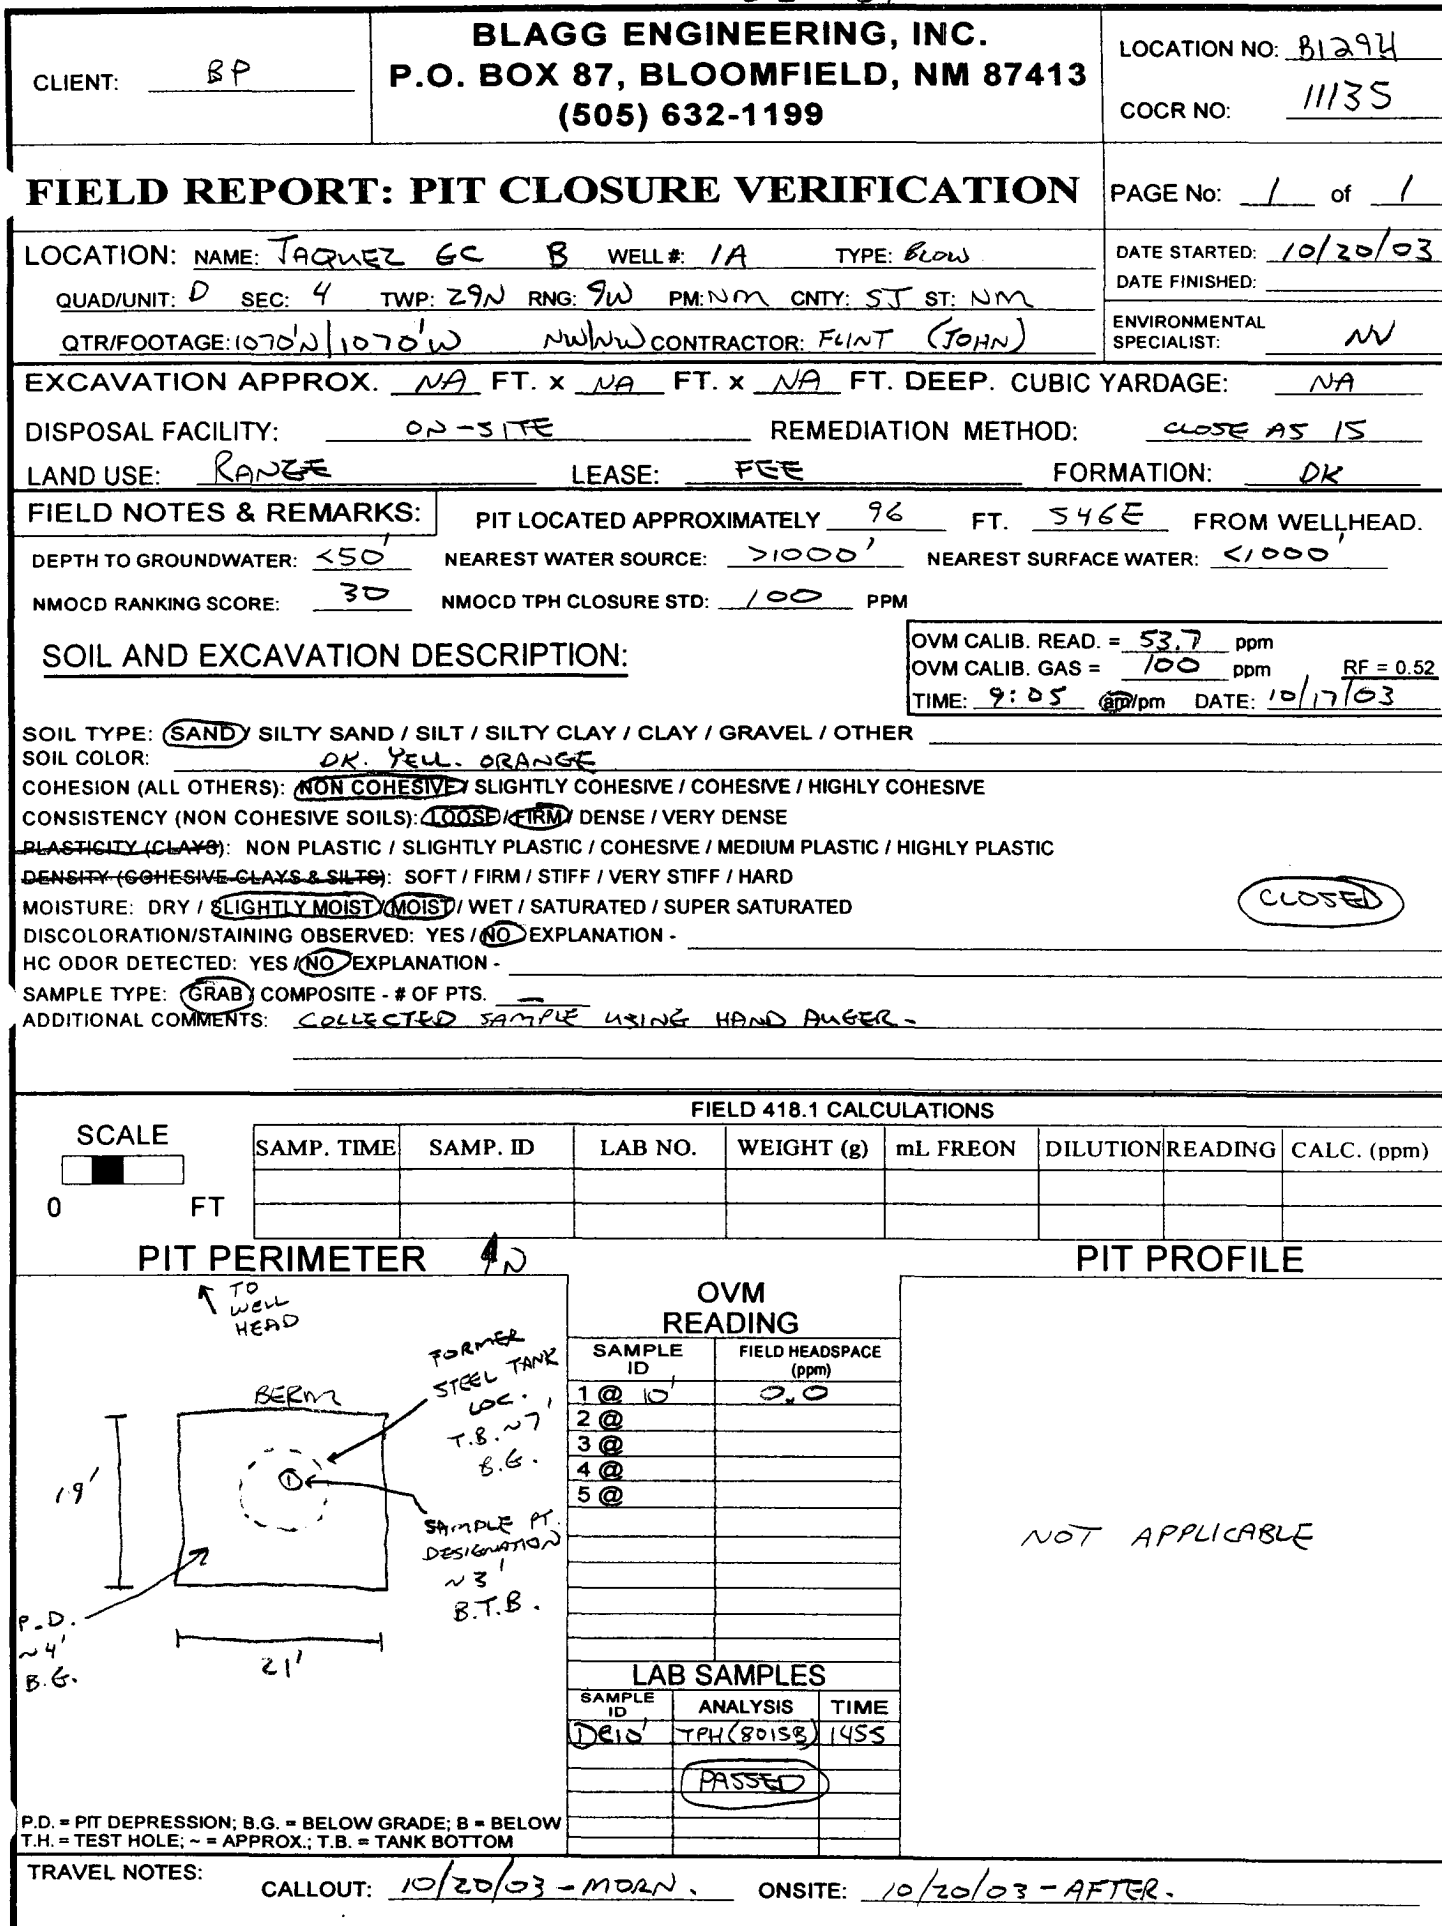 BLAGG ENGINEERING, INC.
P.O. BOX 87, BLOOMFIELD, NM 87413
(505) 632-1199
CLIENT: BP
LOCATION NO: B1294
COCR NO: 11135
FIELD REPORT: PIT CLOSURE VERIFICATION
PAGE No: 1 of 1
LOCATION: NAME: JAQUEZ GC B WELL #: 1A TYPE: BLOW
QUAD/UNIT: D SEC: 4 TWP: 29N RNG: 9W PM: NM CNTY: SJ ST: NM
QTR/FOOTAGE: 1070'N/1070'W NW/NW CONTRACTOR: FLINT (JOHN)
DATE STARTED: 10/20/03
DATE FINISHED:
ENVIRONMENTAL
SPECIALIST: NV
EXCAVATION APPROX. NA FT. x NA FT. x NA FT. DEEP. CUBIC YARDAGE: NA
DISPOSAL FACILITY: ON-SITE REMEDIATION METHOD: CLOSE AS IS
LAND USE: RANGE LEASE: FEE FORMATION: DK
FIELD NOTES & REMARKS: PIT LOCATED APPROXIMATELY 96 FT. S46E FROM WELLHEAD.
DEPTH TO GROUNDWATER: <50' NEAREST WATER SOURCE: >1000' NEAREST SURFACE WATER: <1000'
NMOCD RANKING SCORE: 30 NMOCD TPH CLOSURE STD: 100 PPM
SOIL AND EXCAVATION DESCRIPTION:
OVM CALIB. READ. = 53.7 ppm
OVM CALIB. GAS = 100 ppm RF = 0.52
TIME: 9:05 am/pm DATE: 10/17/03
SOIL TYPE: SAND / SILTY SAND / SILT / SILTY CLAY / CLAY / GRAVEL / OTHER
SOIL COLOR: DK. YELL. ORANGE
COHESION (ALL OTHERS): NON COHESIVE / SLIGHTLY COHESIVE / COHESIVE / HIGHLY COHESIVE
CONSISTENCY (NON COHESIVE SOILS): LOOSE / FIRM / DENSE / VERY DENSE
PLASTICITY (CLAYS): NON PLASTIC / SLIGHTLY PLASTIC / COHESIVE / MEDIUM PLASTIC / HIGHLY PLASTIC
DENSITY (COHESIVE CLAYS & SILTS): SOFT / FIRM / STIFF / VERY STIFF / HARD
MOISTURE: DRY / SLIGHTLY MOIST / MOIST / WET / SATURATED / SUPER SATURATED
CLOSED
DISCOLORATION/STAINING OBSERVED: YES / NO EXPLANATION -
HC ODOR DETECTED: YES / NO EXPLANATION -
SAMPLE TYPE: GRAB / COMPOSITE - # OF PTS. —
ADDITIONAL COMMENTS: COLLECTED SAMPLE USING HAND AUGER.
FIELD 418.1 CALCULATIONS
SCALE
0 FT
SAMP. TIME SAMP. ID LAB NO. WEIGHT (g) mL FREON DILUTION READING CALC. (ppm)
PIT PERIMETER N
PIT PROFILE
TO
WELL
HEAD
BERM
FORMER
STEEL TANK
LOC.
T.B. ~7'
B.G.
19'
SAMPLE PT.
DESIGNATION
~3'
B.T.B.
1
P.D.
~4'
B.G.
21'
OVM
READING
SAMPLE
ID
FIELD HEADSPACE
(ppm)
1 @ 10' 0.0
2 @
3 @
4 @
5 @
NOT APPLICABLE
LAB SAMPLES
SAMPLE
ID
ANALYSIS TIME
①@10' TPH (8015B) 1455
PASSED
P.D. = PIT DEPRESSION; B.G. = BELOW GRADE; B = BELOW
T.H. = TEST HOLE; ~ = APPROX.; T.B. = TANK BOTTOM
TRAVEL NOTES:
CALLOUT: 10/20/03 - MORN. ONSITE: 10/20/03 - AFTER.